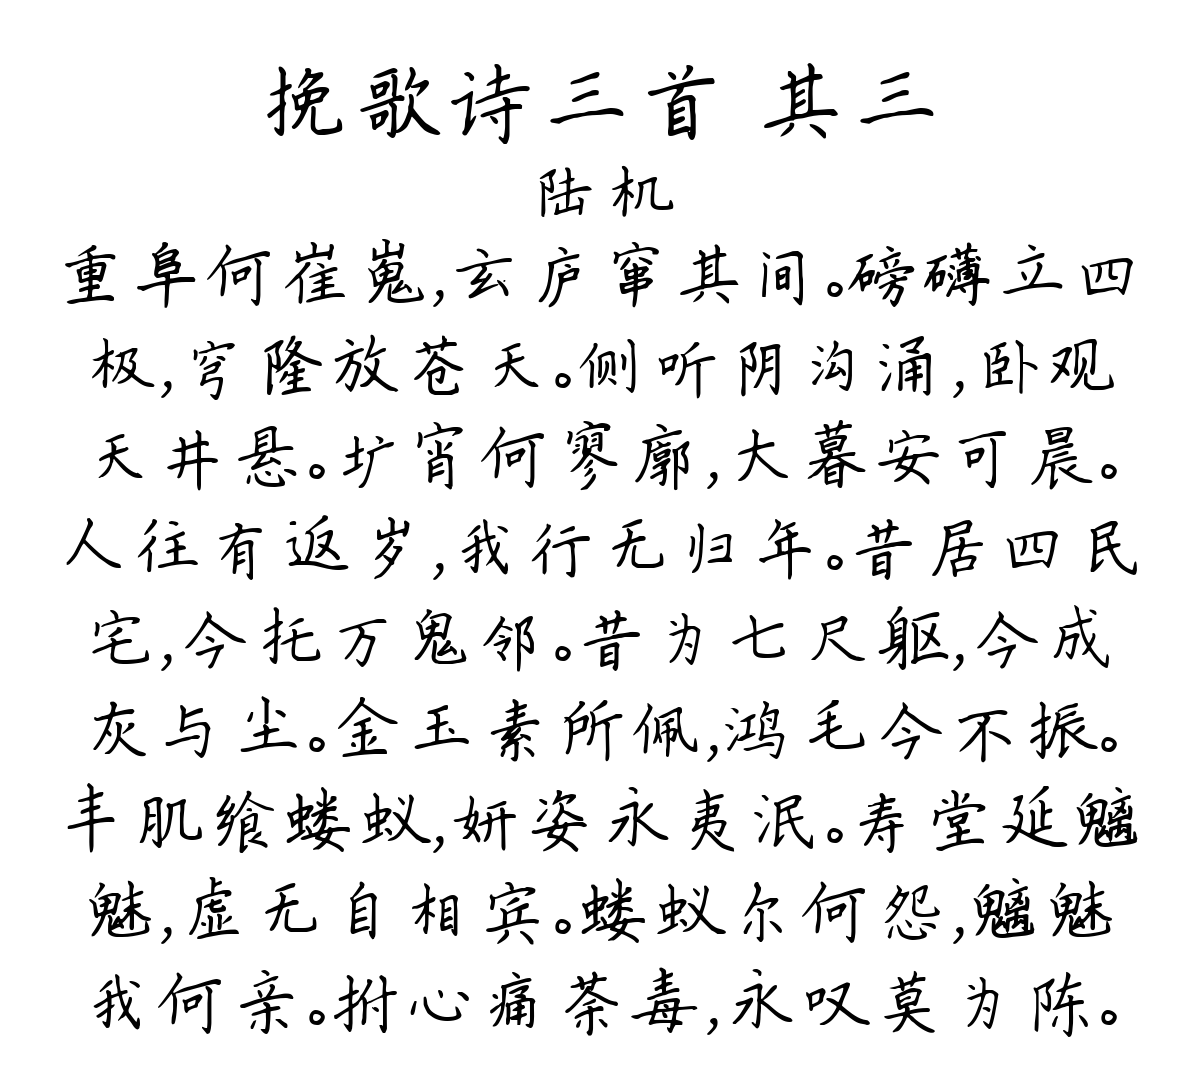 挽歌诗三首 其三
陆机
重阜何崔嵬,玄庐窜其间。磅礴立四
极,穹隆放苍天。侧听阴沟涌,卧观
天井悬。圹宵何寥廓,大暮安可晨。
人往有返岁,我行无归年。昔居四民
宅,今托万鬼邻。昔为七尺躯,今成
灰与尘。金玉素所佩,鸿毛今不振。
丰肌飨蝼蚁,妍姿永夷泯。寿堂延魑
魅,虚无自相宾。蝼蚁尔何怨,魑魅
我何亲。拊心痛荼毒,永叹莫为陈。